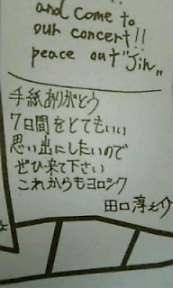 and come to
our concert!!
peace out "Jin"
手紙ありがとう
7日間をとてもいい
思い出にしたいので
ぜひ来て下さい
これからもヨロシク
田口淳之介